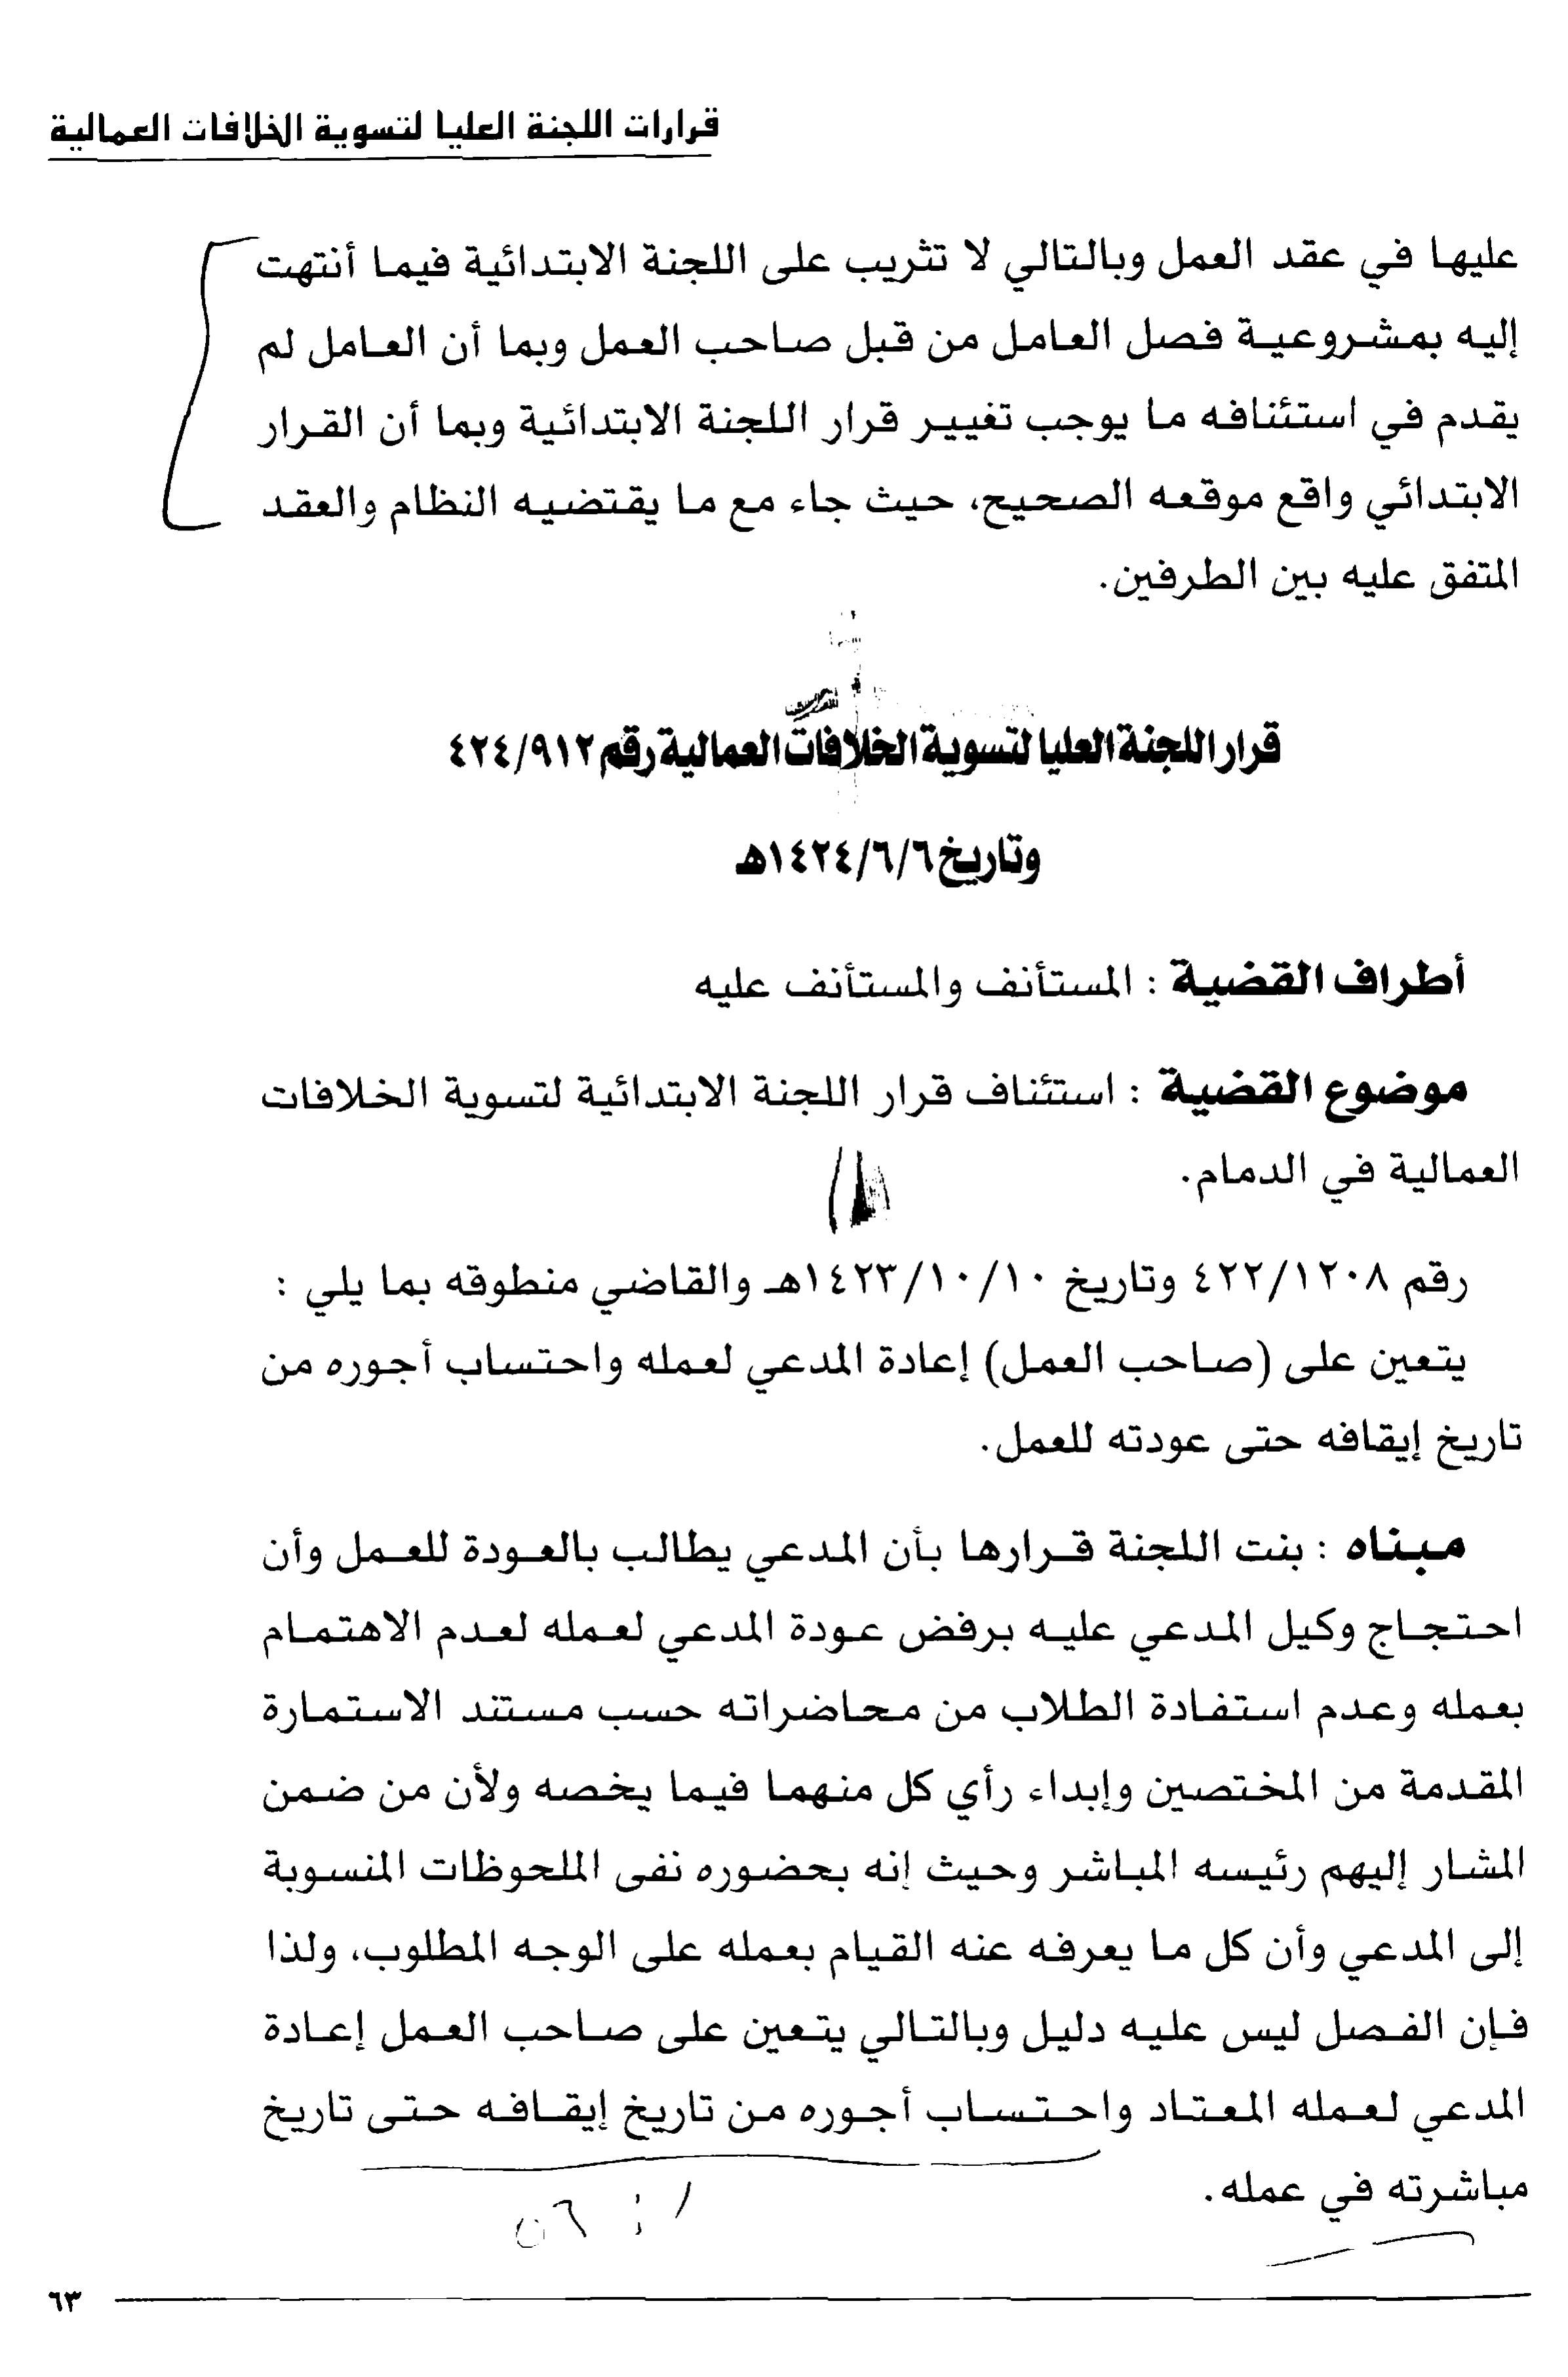 قرارات اللجنة العليا لتسوية الخلافات العمالية
عليها في عقد العمل وبالتالي لا تثريب على اللجنة الابتدائية فيما أنتهت
إليه بمشروعية فصل العامل من قبل صاحب العمل وبما أن العامل لم
يقدم في استئنافه ما يوجب تغيير قرار اللجنة الابتدائية وبما أن القرار
الابتدائي واقع موقعه الصحيح، حيث جاء مع ما يقتضيه النظام والعقد
المتفق عليه بين الطرفين.
قرار اللجنة العليا لتسوية الخلافات العمالية رقم ٤٢٤/٩١٢
وتاريخ ١٤٢٤/٦/٦هـ
أطراف القضية : المستأنف والمستأنف عليه
موضوع القضية : استئناف قرار اللجنة الابتدائية لتسوية الخلافات
العمالية في الدمام.
رقم ٤٢٢/١٢٠٨ وتاريخ ١٤٢٣/١٠/١٠هـ والقاضي منطوقه بما يلي :
يتعين على (صاحب العمل) إعادة المدعي لعمله واحتساب أجوره من
تاريخ إيقافه حتى عودته للعمل.
مبناه : بنت اللجنة قرارها بأن المدعي يطالب بالعودة للعمل وأن
احتجاج وكيل المدعي عليه برفض عودة المدعي لعمله لعدم الاهتمام
بعمله وعدم استفادة الطلاب من محاضراته حسب مستند الاستمارة
المقدمة من المختصين وإبداء رأي كل منهما فيما يخصه ولأن من ضمن
المشار إليهم رئيسه المباشر وحيث إنه بحضوره نفى الملحوظات المنسوبة
إلى المدعي وأن كل ما يعرفه عنه القيام بعمله على الوجه المطلوب، ولذا
فإن الفصل ليس عليه دليل وبالتالي يتعين على صاحب العمل إعادة
المدعي لعمله المعتاد واحتساب أجوره من تاريخ إيقافه حتى تاريخ
مباشرته في عمله.
٦٣